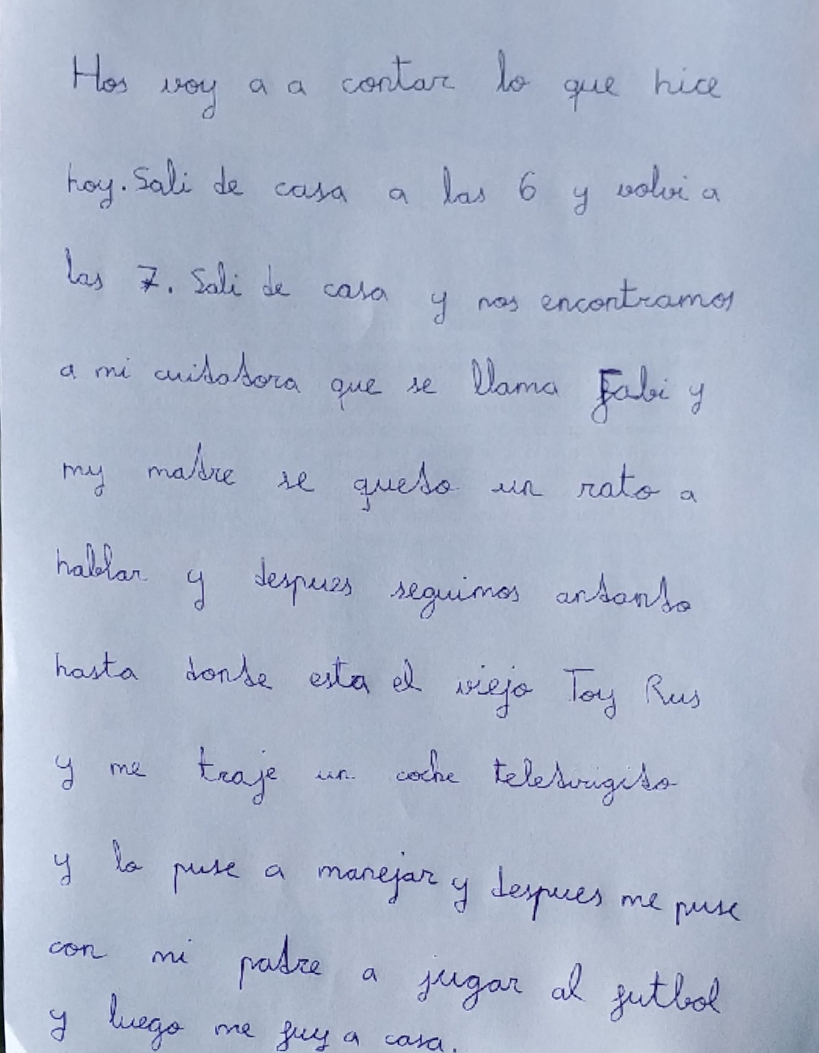 Hos voy a a contar lo que hice
hoy. Sali de casa a las 6 y volvi a
las 7. Sali de casa y nos encontramos
a mi cuidadora que se llama Fabi y
my madre se quedo un rato a
hablar y despues seguimos andando
hasta donde esta el viejo Toy Rus
y me traje un coche teledirigido
y lo puse a manejar y despues me puse
con mi padre a jugar al futbol
y luego me fuy a casa.